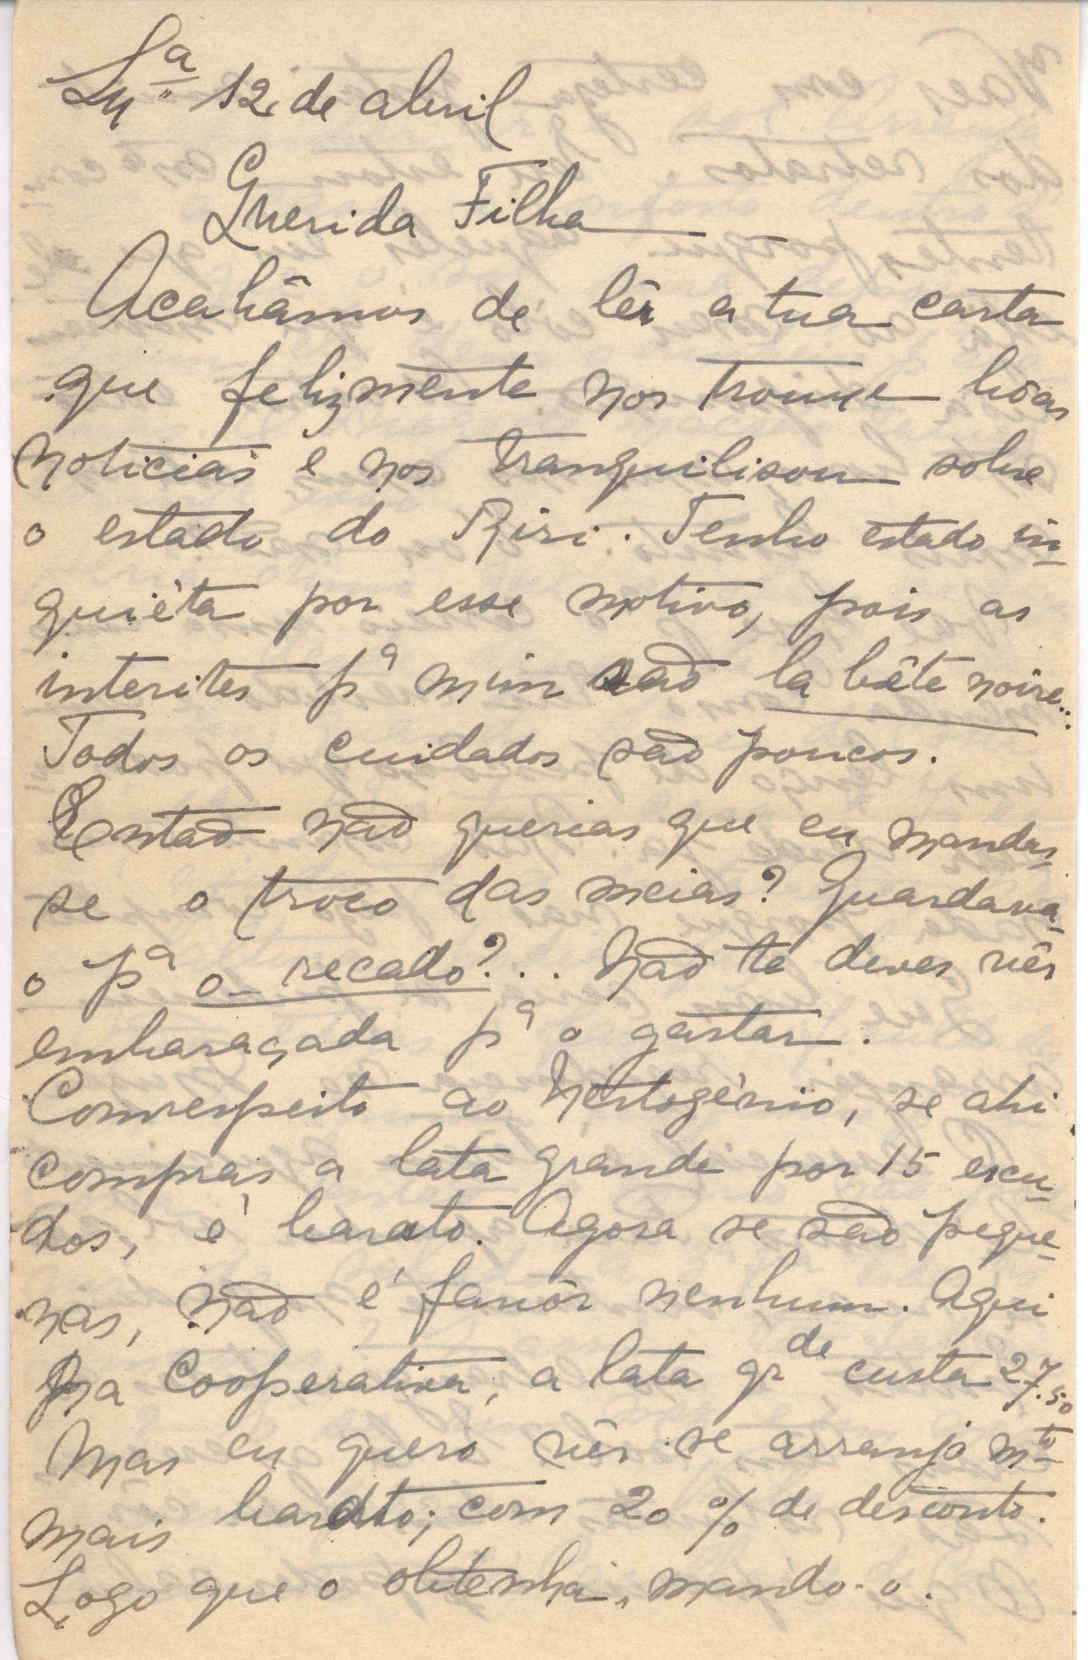 Lxª 12 de abril
Querida Filha
Acabâmos de lêr a tua carta
que felizmente nos trouxe bôas
noticias e nos tranquilisou sobre
o estado do Riri. Tenho estado in-
quiéta por esse motivo, pois as
interites pª mim são la bête noire...
Todos os cuidados são poucos.
Então não querias que eu mandas-
se o troco das meias? Guardava-
o pª o recado?... Não te deves vêr
embaraçada pª o gastar.
Com respeito ao Nestogénio, se ahi
compras a lata grande por 15 escu-
dos, é barato. Agora se são peque-
nas, não é favôr nenhum. Aqui
na Cooperativa, a lata grde custa 27.50
Mas eu quero vêr se arranjo mto
mais barato; com 20% de desconto.
Logo que o obtenha, mando-o.